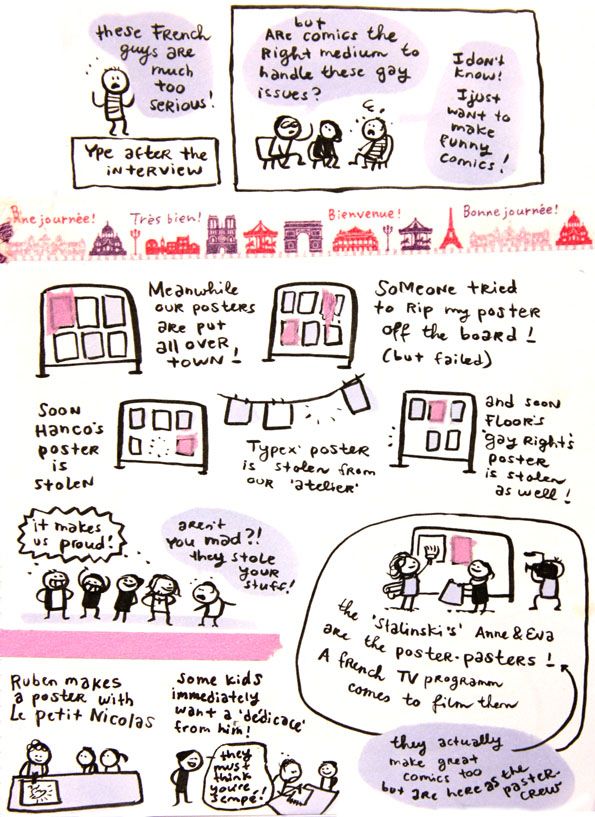 these French
guys are
much
too
serious!
Ype after the
interview
but
Are comics the
Right medium to
handle these gay
issues?
I don't
know!
I just
want to
make
funny
comics!
Bonne journée!
Très bien!
Bienvenue!
Bonne journée!
Meanwhile
our posters
are put
all over
town!
Someone tried
to Rip my poster
off the board!
(but failed)
Soon
Hanco's
poster
is
stolen
Typex' poster
is stolen from
our 'atelier'
and soon
Floor's
'gay Right's
poster
is stolen
as well!
it makes
us proud!
aren't
you mad?!
they stole
your
stuff!
the 'Stalinski's' Anne & Eva
are the poster-pasters!
A french TV programm
comes to film them
they actually
make great
comics too
but are here as the
paster-
crew
Ruben makes
a poster with
Le petit Nicolas
Some kids
immediately
want a 'dedicace'
from him!
they
must
think
you're
Sempé!